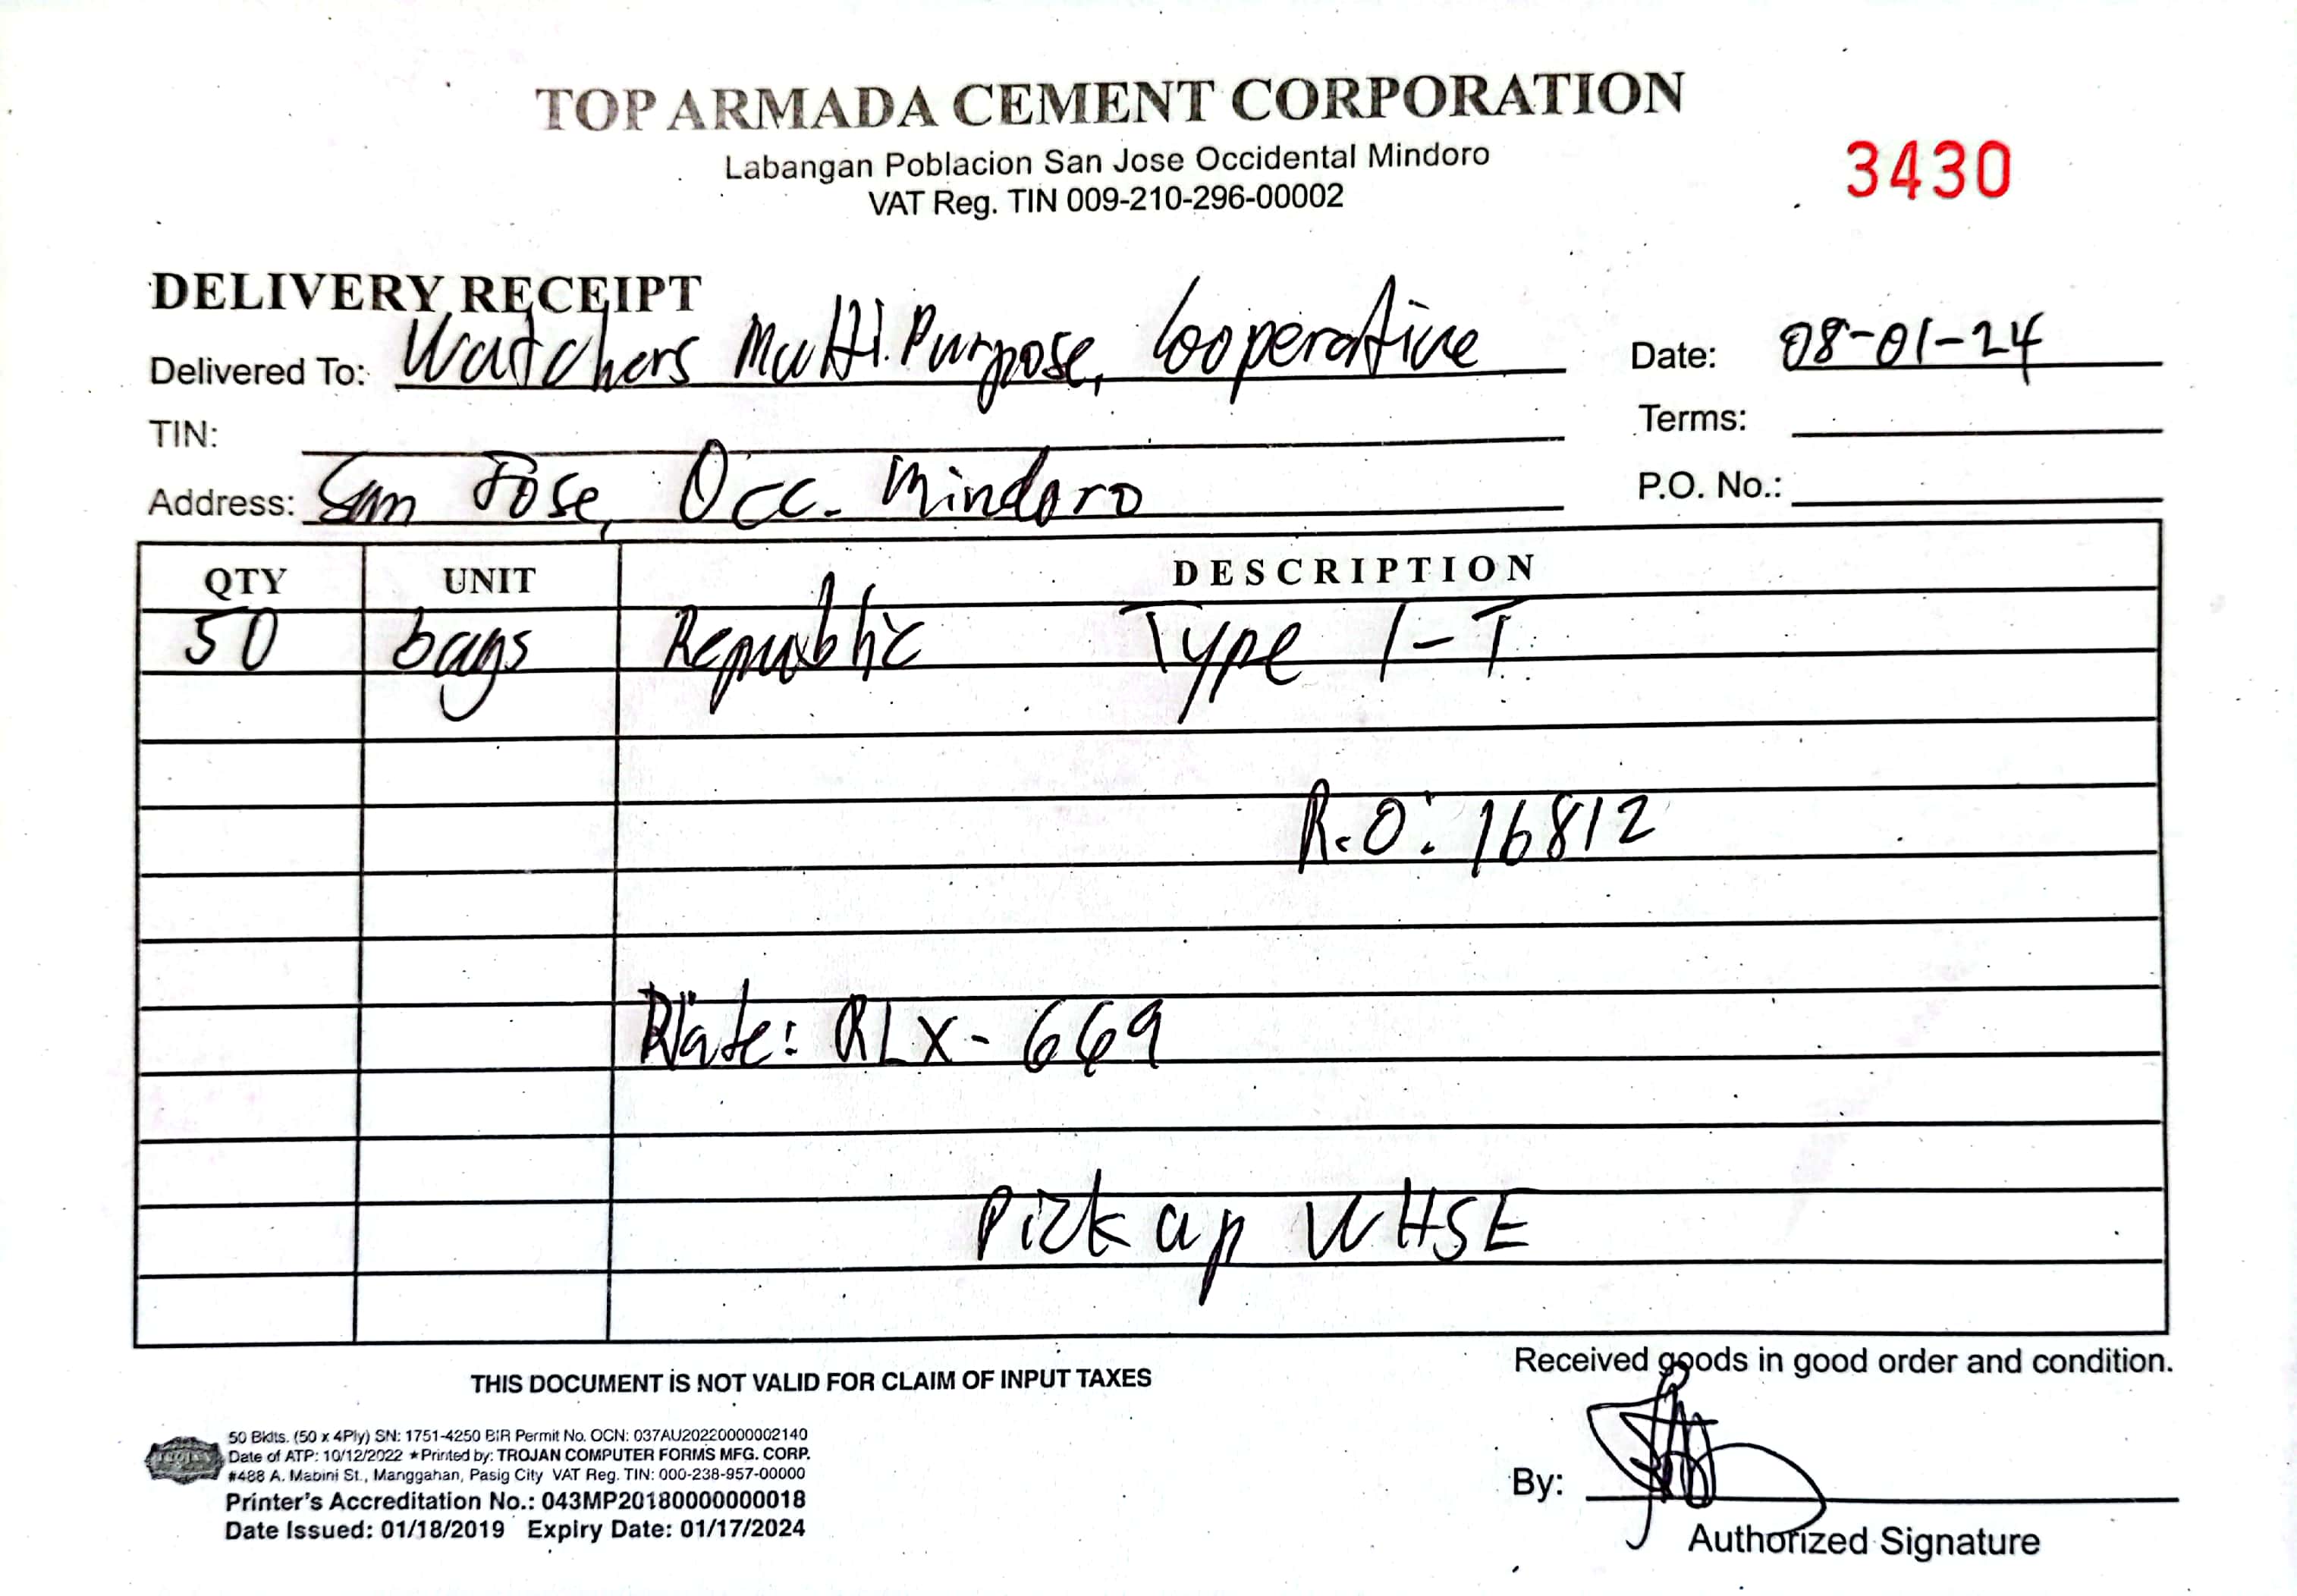 TOP ARMADA CEMENT CORPORATION
Labangan Poblacion San Jose Occidental Mindoro
VAT Reg. TIN 009-210-296-00002
3430
DELIVERY RECEIPT
Delivered To: Watchers Multi Purpose, Cooperative
Date: 08-01-24
TIN:
Terms:
Address: San Jose, Occ. Mindoro
P.O. No.:
QTY UNIT DESCRIPTION
50 bags Republic Type 1-T
R.O: 16812
Plate: RLX-669
Pick up WHSE
THIS DOCUMENT IS NOT VALID FOR CLAIM OF INPUT TAXES
Received goods in good order and condition.
50 Bklts. (50 x 4Ply) SN: 1751-4250 BIR Permit No. OCN: 037AU20220000002140
Date of ATP: 10/12/2022 ★Printed by: TROJAN COMPUTER FORMS MFG. CORP.
#488 A. Mabini St., Manggahan, Pasig City VAT Reg. TIN: 000-238-957-00000
Printer's Accreditation No.: 043MP20180000000018
Date Issued: 01/18/2019 Expiry Date: 01/17/2024
By:
Authorized Signature